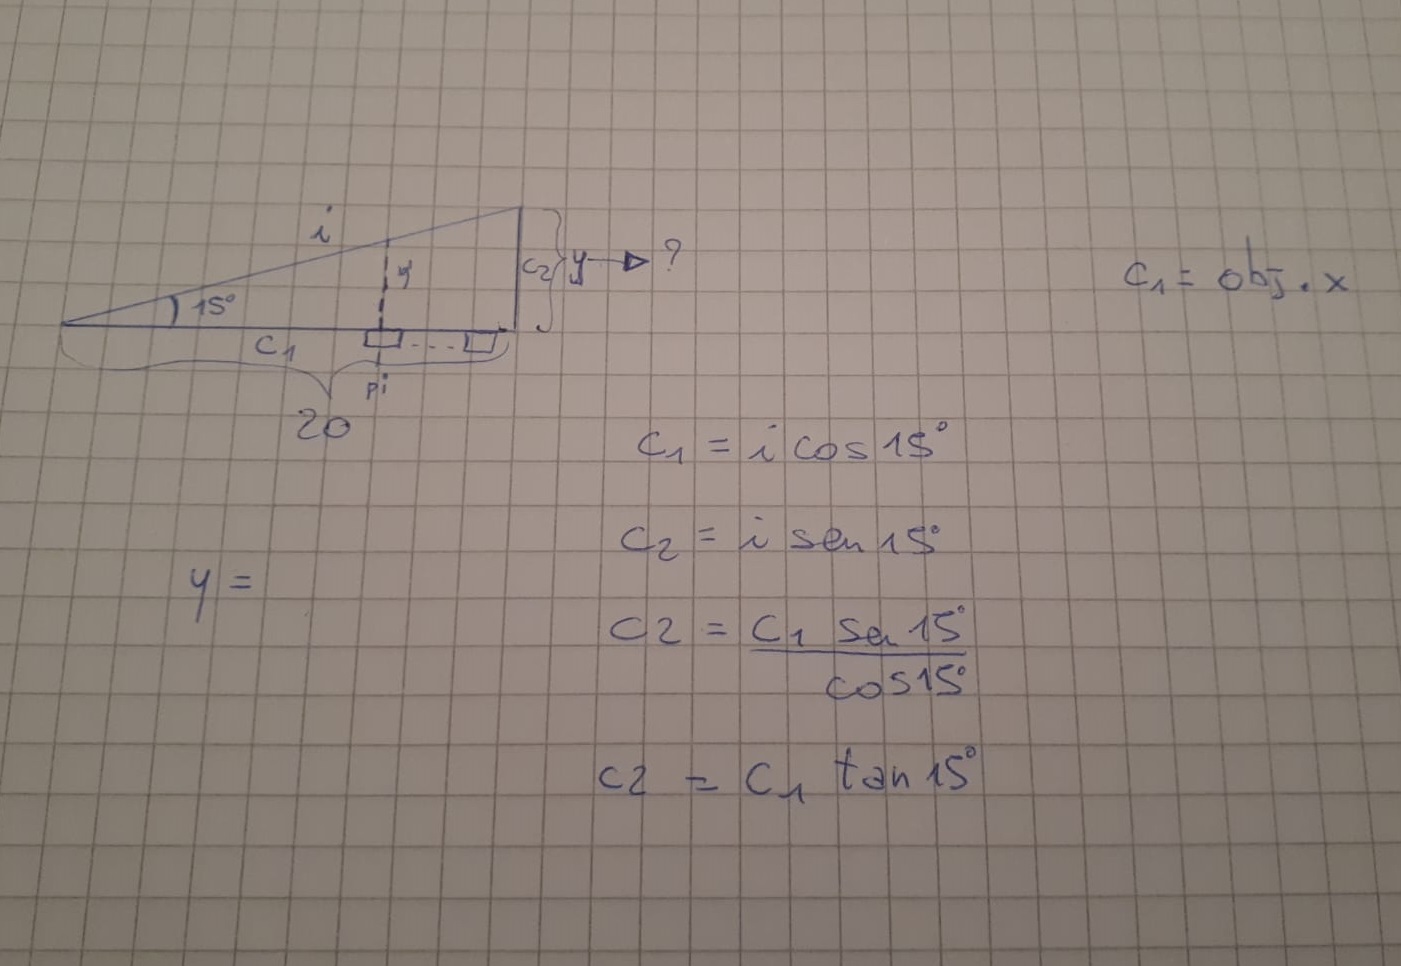 i
15°
y
c2
y → ?
c1 = obj. x
c1
pi
20
c1 = i cos 15°
c2 = i sen 15°
y =
c2 = c1 sen 15°
cos 15°
c2 = c1 tan 15°